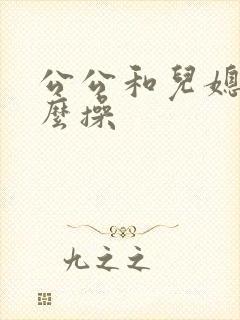 公公和兒媳
麼操
九之之